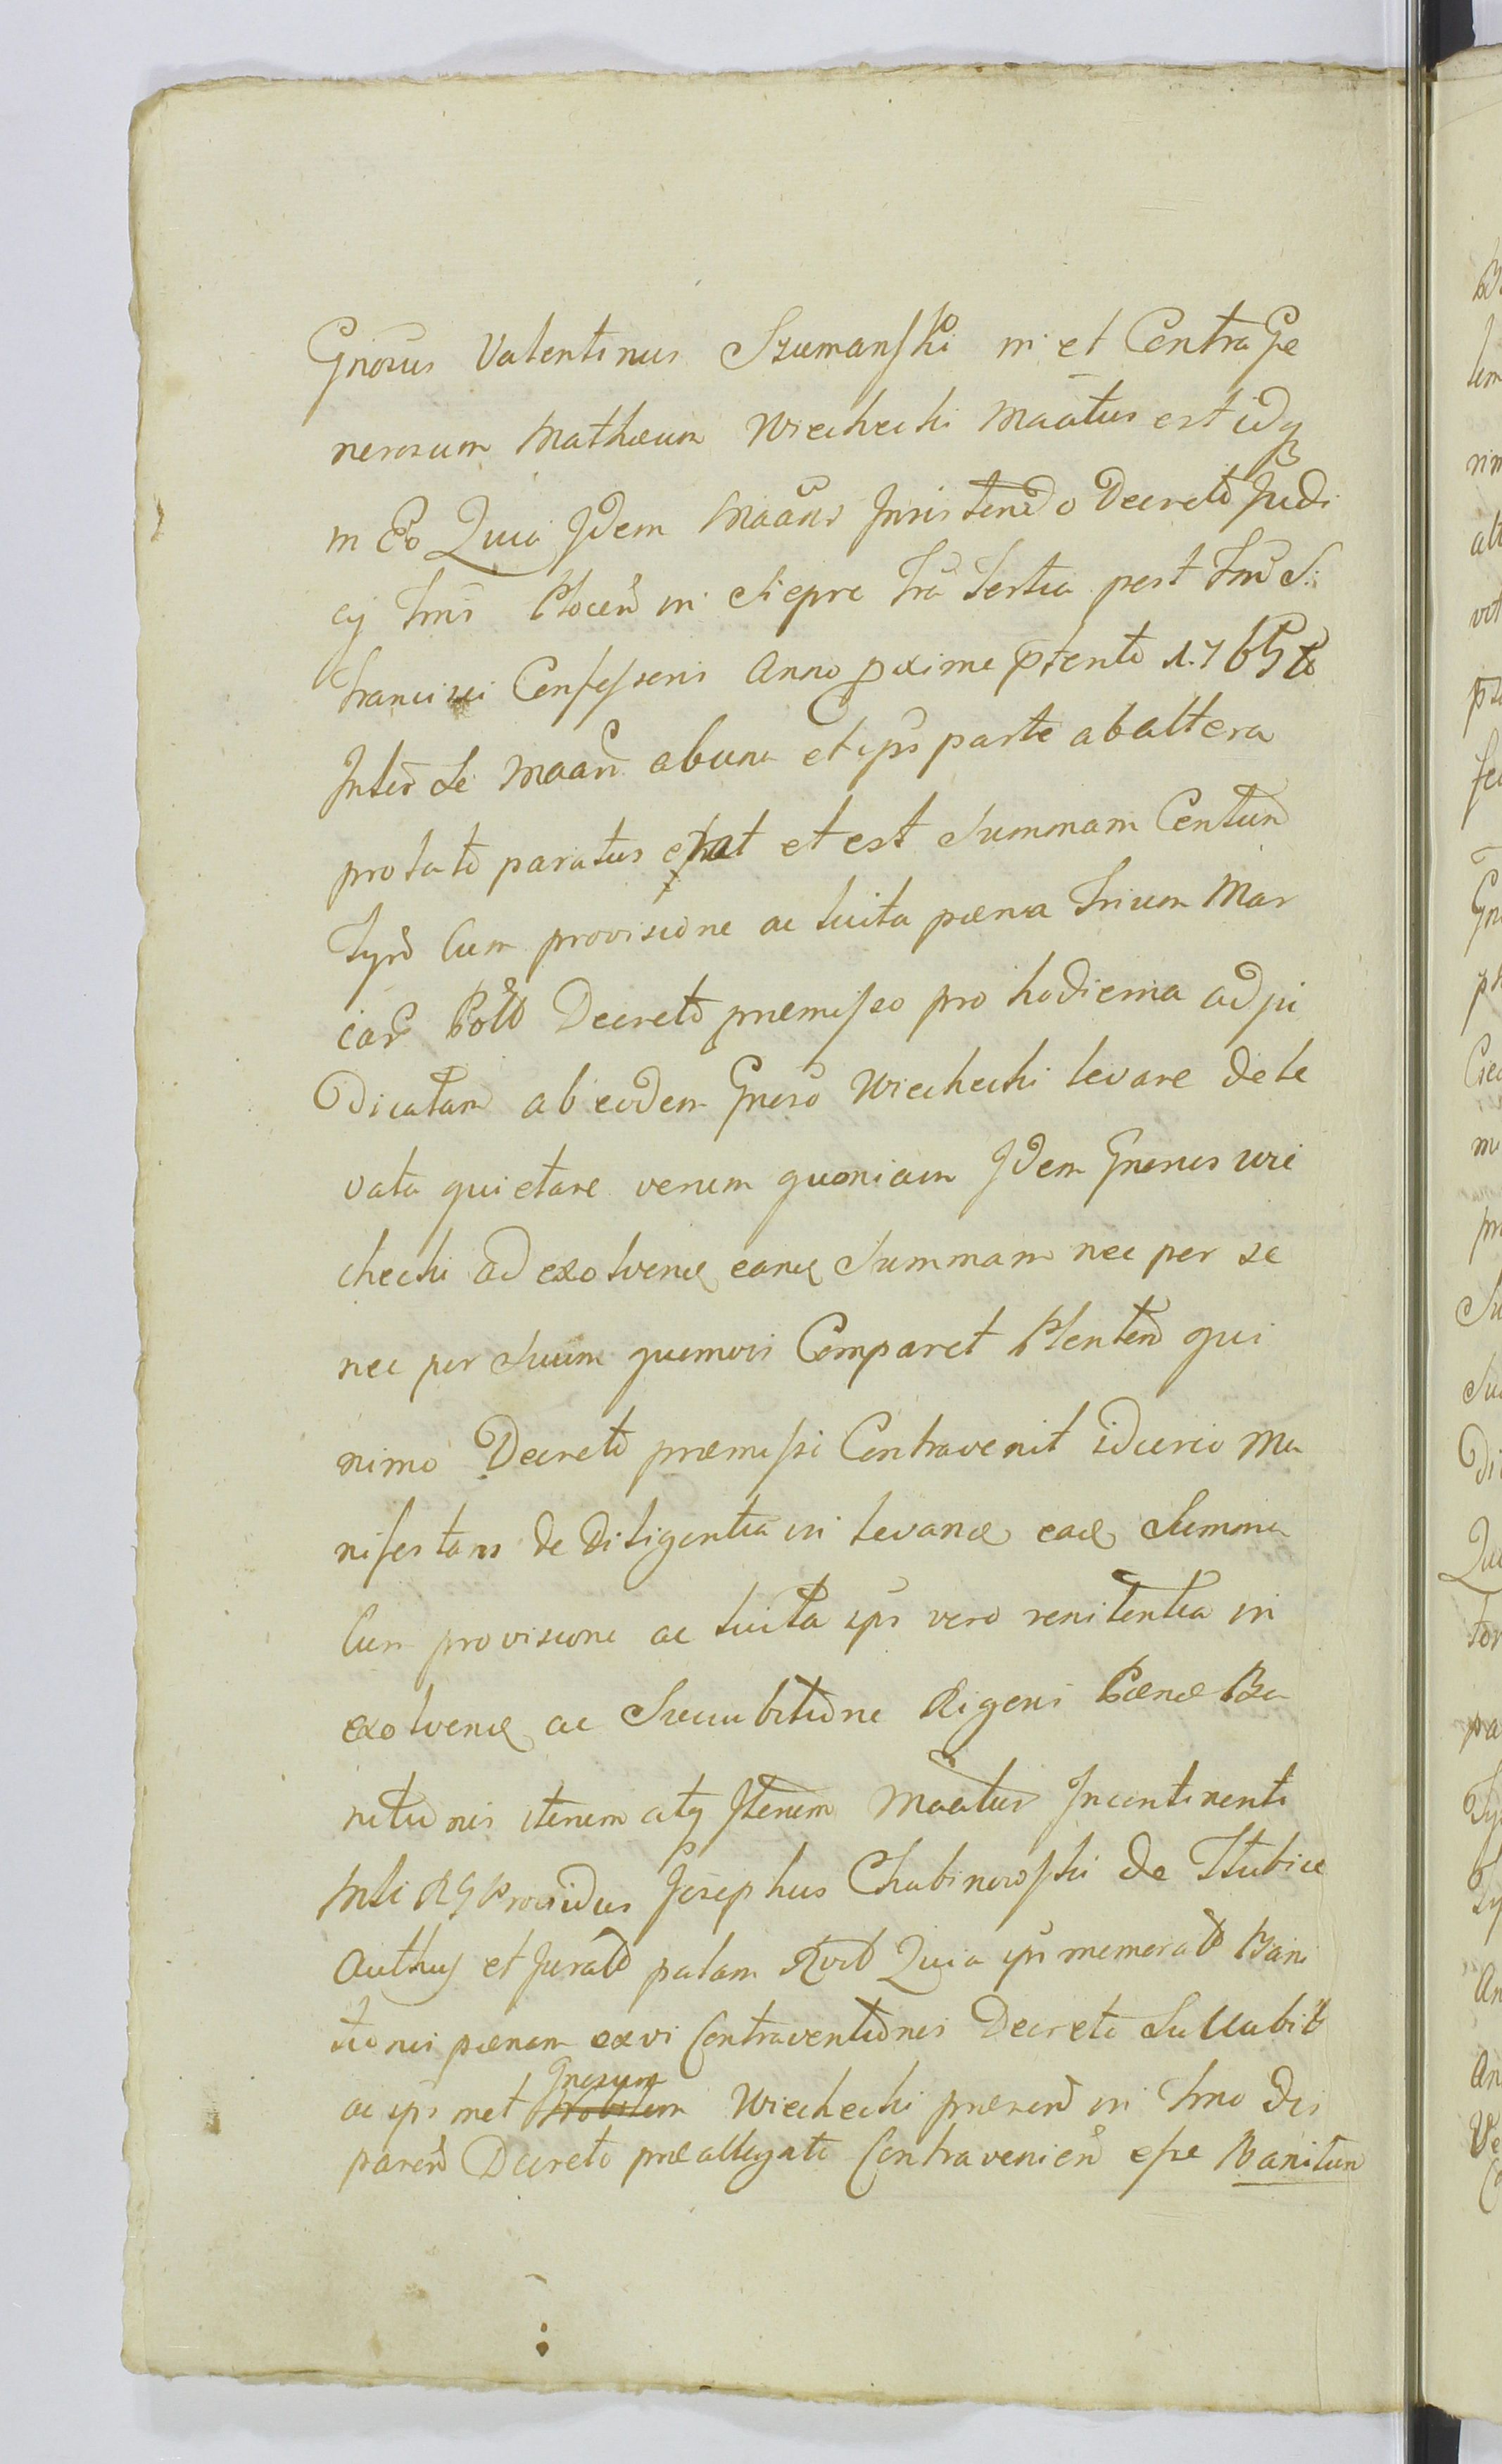 Gnosus Valentinus Szumanski in et Contra Ge
nerosum Mathæum Wiechecki Maatus est idq
in Eo Quia Idem Maans Insistendo Decreto Judi
cij Tmi Plocen in Siepre Fra Tertia post Fm S:
Francisci Confessoris Anno pxime ptento 1765to
Inter Se Maan ab una et ips parte ab altera
prolato paratus erat et est Summam Centum
Tynf Cum provisione ac luita pæna Trium Mar
car Pol Decreto præmisso pro hodierna adju
dicatam ab eodem Gnoso Wiechecki levare de le
vata quietare verum quoniam Idem Gnosus Wie
checki ad exolvend eand Summam nec per se
nec per Suum quemvis Comparet Plenten qui
nimo Decreto præmisso Contravenit idcirco Ma
nifestans de Diligentia in levand ead Summa
Cum provisione ac luita ips vero renitentia in
exolvend ac Succubitione Rigoris Pænæ Ba
nitionis iterum atq Iterum Maatus Incontinenti
Mli RG Providus Josephus Chabinowski de Slubice
Authus et Jurats palam Rvit Quia ips memorato Bani
tionis pænam ex vi Contraventionis Decreto Succubit
Gnosum
ac ips met Nobilem Wiechecki præsen in Tmo dis
paren Decreto præallegato Contravenien esse Banitum